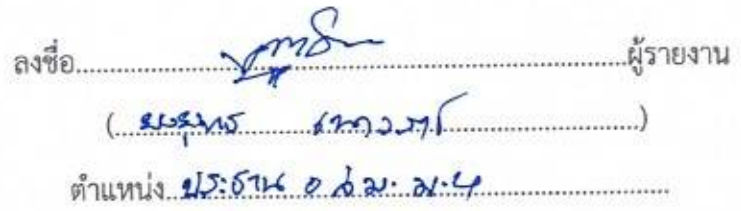 ลงชื่อ........................ผู้รายงาน
(ยงยุทธ ........................)
ตำแหน่ง ประธาน อ ส ม. ม.4